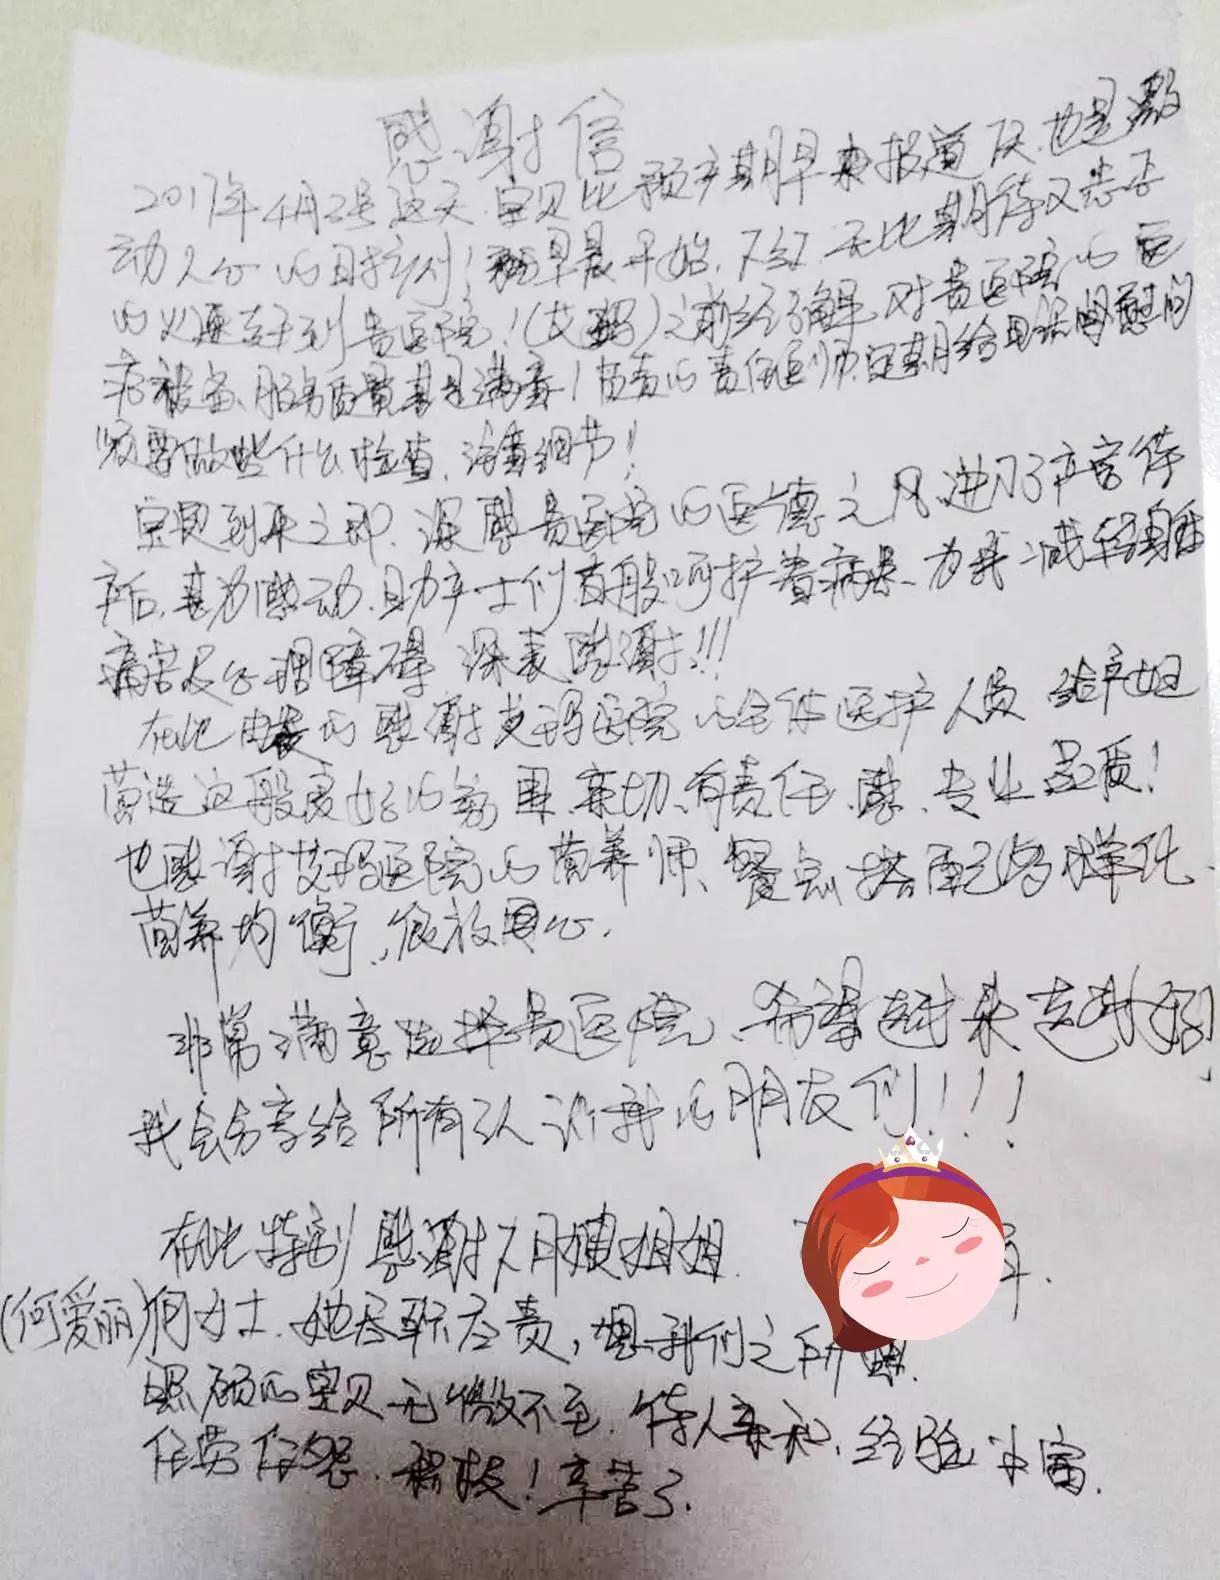 感谢信
2017年4月2号这天.宝贝比预产期早来报道了.也是激
动人心的时刻!早晨开始.下红.无比期待又忐忑
的火速奔到贵医院!(艾玛)之前经了解对贵医院的医
疗设备、服务质量甚是满意!负责的责任医师.定期给电话慰问
需要做些什么检查.注意细节!
宝贝到来之即.深感贵医院的医德之风.进入了产宫待
产后.甚为感动.助产士们百般呵护着病患、为我减轻身体
痛苦及心理障碍 深表感谢!!!
在此由衷的感谢艾玛医院的全体医护人员 给产妇
营造这般良好的氛围.亲切、有责任感、专业品质!
也感谢艾玛医院的营养师、餐点搭配多样化、
营养均衡,很放心.
非常满意选择贵医院、希望越来越好
我会分享给所有认识我的朋友们!!!
在此特别感谢月嫂姐姐.
(何爱丽)何女士.她尽职尽责,想我们之所
照顾的宝贝无微不至.待人亲和.经验丰富.
任劳任怨.积极!辛苦了.